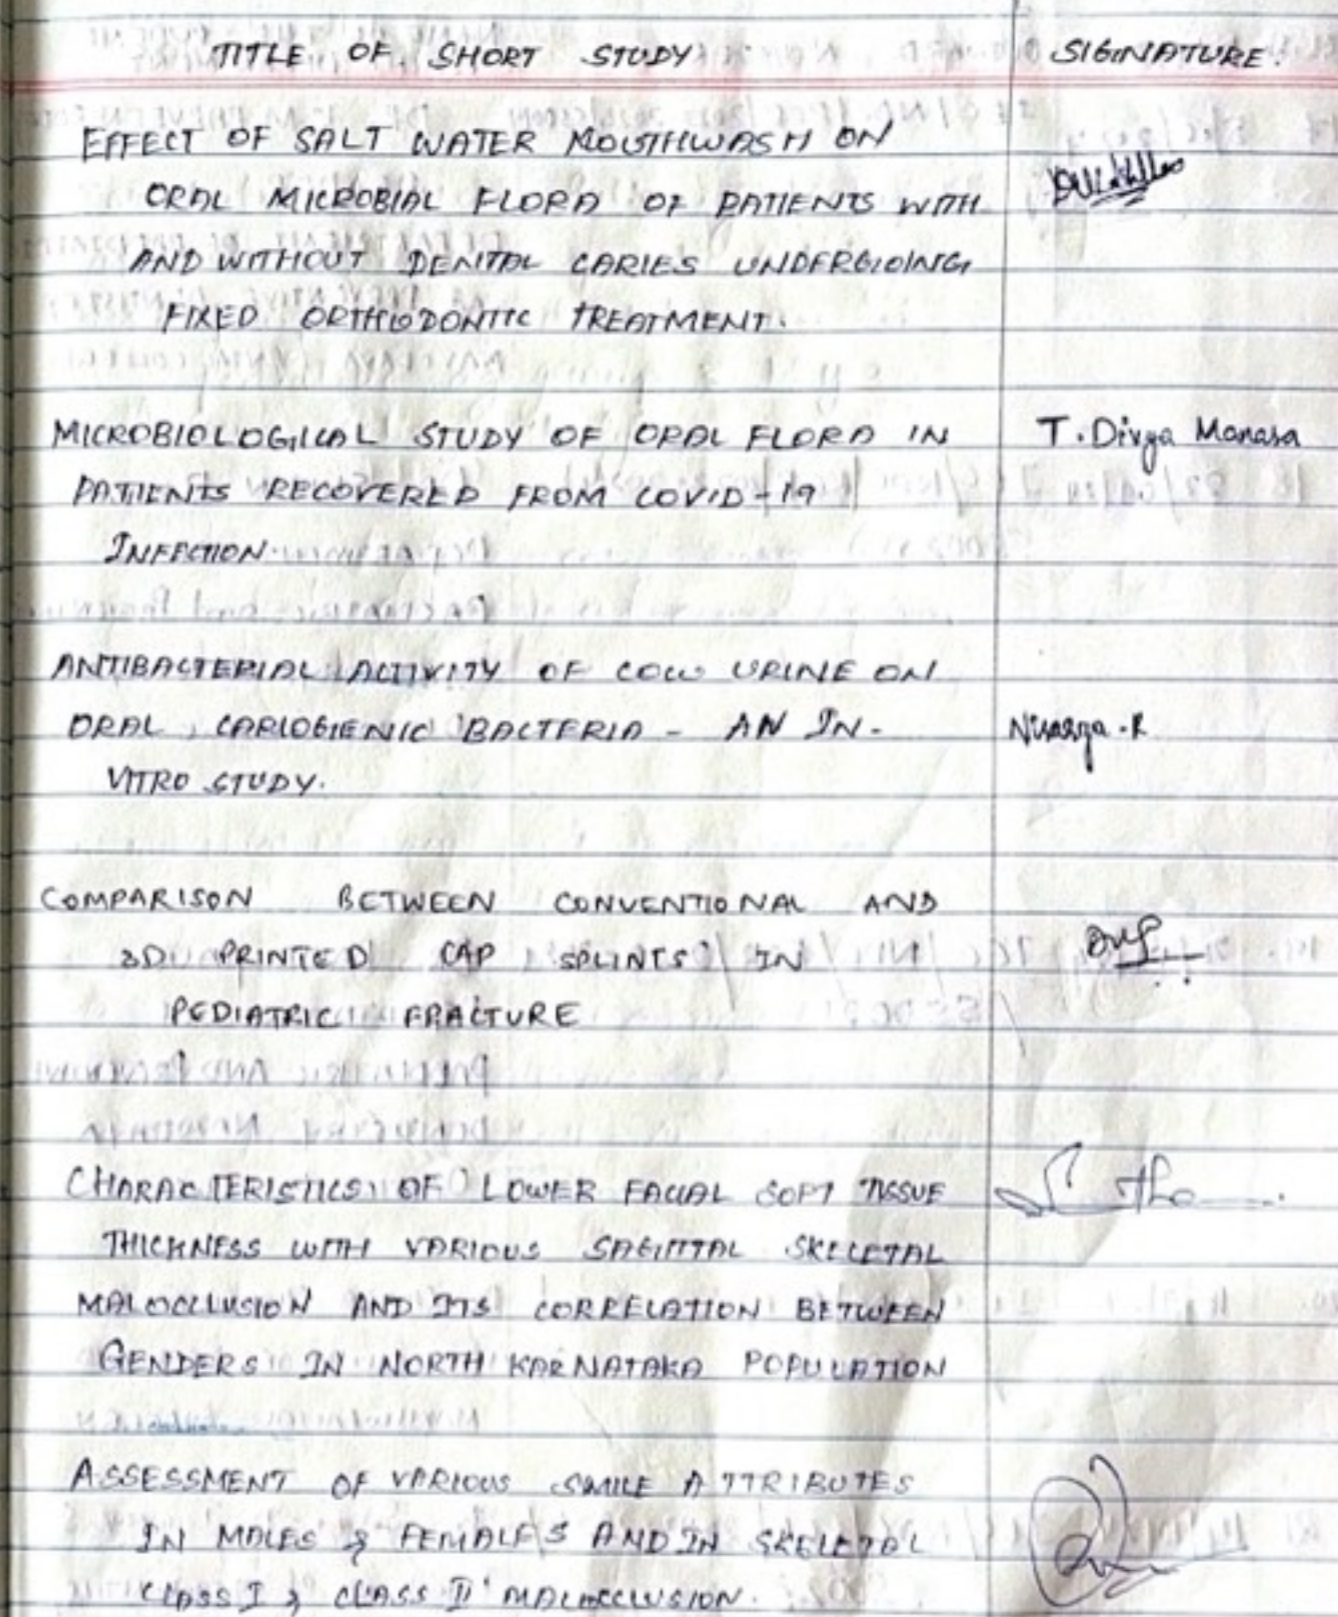 TITLE OF SHORT STUDY SIGINATURE.
EFFECT OF SALT WATER MOUTHWASH ON
ORAL MICROBIAL FLORA OF PATIENTS WITH
AND WITHOUT DENTAL CARIES UNDERGOING
FIXED ORTHODONTIC TREATMENT.
MICROBIOLOGICAL STUDY OF ORAL FLORA IN T. Divya Manasa
PATIENTS RECOVERED FROM COVID-19
INFECTION.
ANTIBACTERIAL ACTIVITY OF COW URINE ON
ORAL CARIOGENIC BACTERIA - AN IN- Nisarga.R
VITRO STUDY.
COMPARISON BETWEEN CONVENTIONAL AND
3D PRINTED CAP SPLINTS IN
PEDIATRIC FRACTURE
CHARACTERISTICS OF LOWER FACIAL SOFT TISSUE
THICKNESS WITH VARIOUS SAGITTAL SKELETAL
MALOCCLUSION AND ITS CORRELATION BETWEEN
GENDERS IN NORTH KARNATAKA POPULATION
ASSESSMENT OF VARIOUS SMILE ATTRIBUTES
IN MALES & FEMALES AND IN SKELETAL
CLASS I & CLASS II MALOCCLUSION.